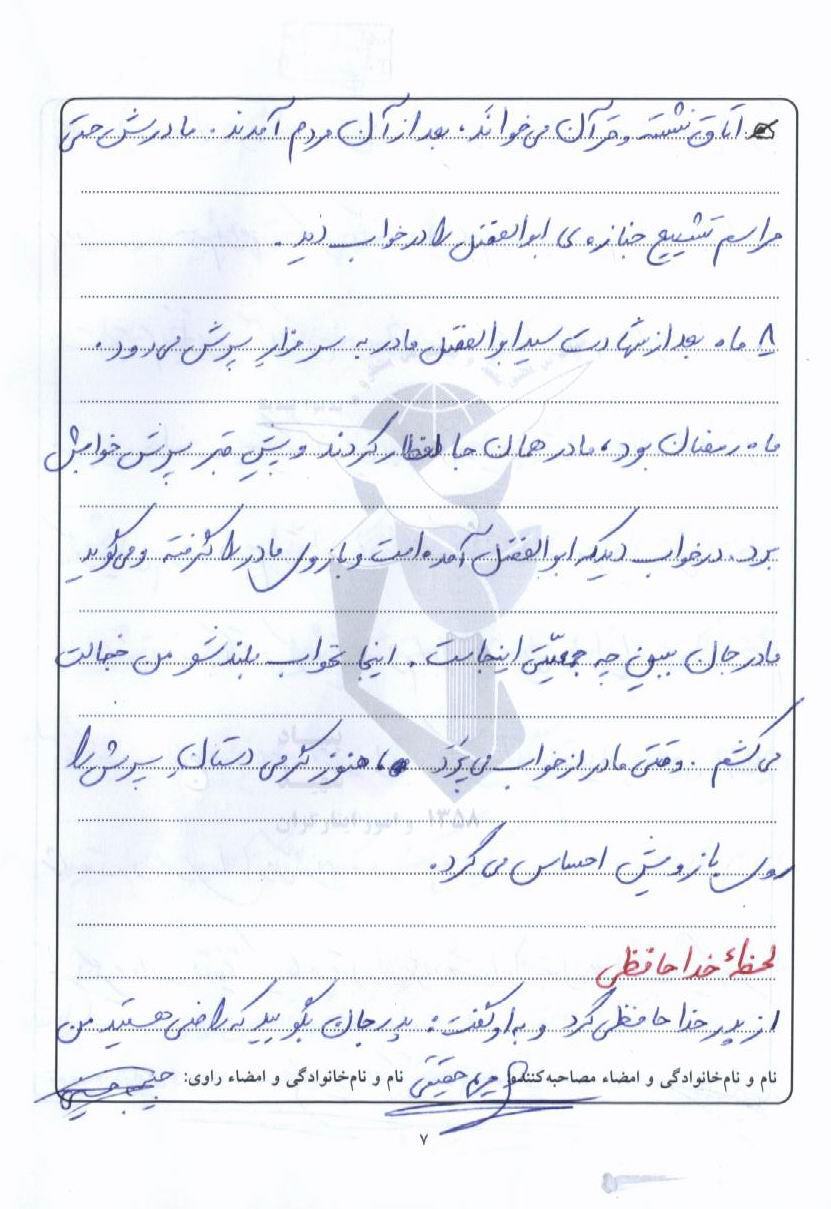 اتاق نشسته و قرآن می‌خواند، بعد از آن مردم آمدند. مادرش حتی
مراسم تشییع جنازه‌ی ابوالفضل را در خواب دید.
۸ ماه بعد از شهادت سید ابوالفضل مادر به سر مزار پسرش می‌رود.
ماه رمضان بود، مادر همان جا افطار کردند و پیش قبر پسرش خوابش
برد. در خواب دید که ابوالفضل آمده است و بازوی مادر را گرفته و می‌گوید
مادر جان ببین چه جمعیّتی اینجاست. اینجا نخواب بلند شو من خجالت
می‌کشم. وقتی مادر از خواب می‌پَرَد، هنوز گرمی دستانِ پسرش را
روی بازویش احساس می‌کرد.
لحظهٔ خداحافظی
از پدر خداحافظی کرد و به او گفت: پدر جان بگویید که راضی هستید من
نام و نام‌خانوادگی و امضاء مصاحبه‌کننده: مریم حقیقی نام و نام‌خانوادگی و امضاء راوی: حسینی
۷
بنیاد
۱۳۵۸ و امور ایثارگران